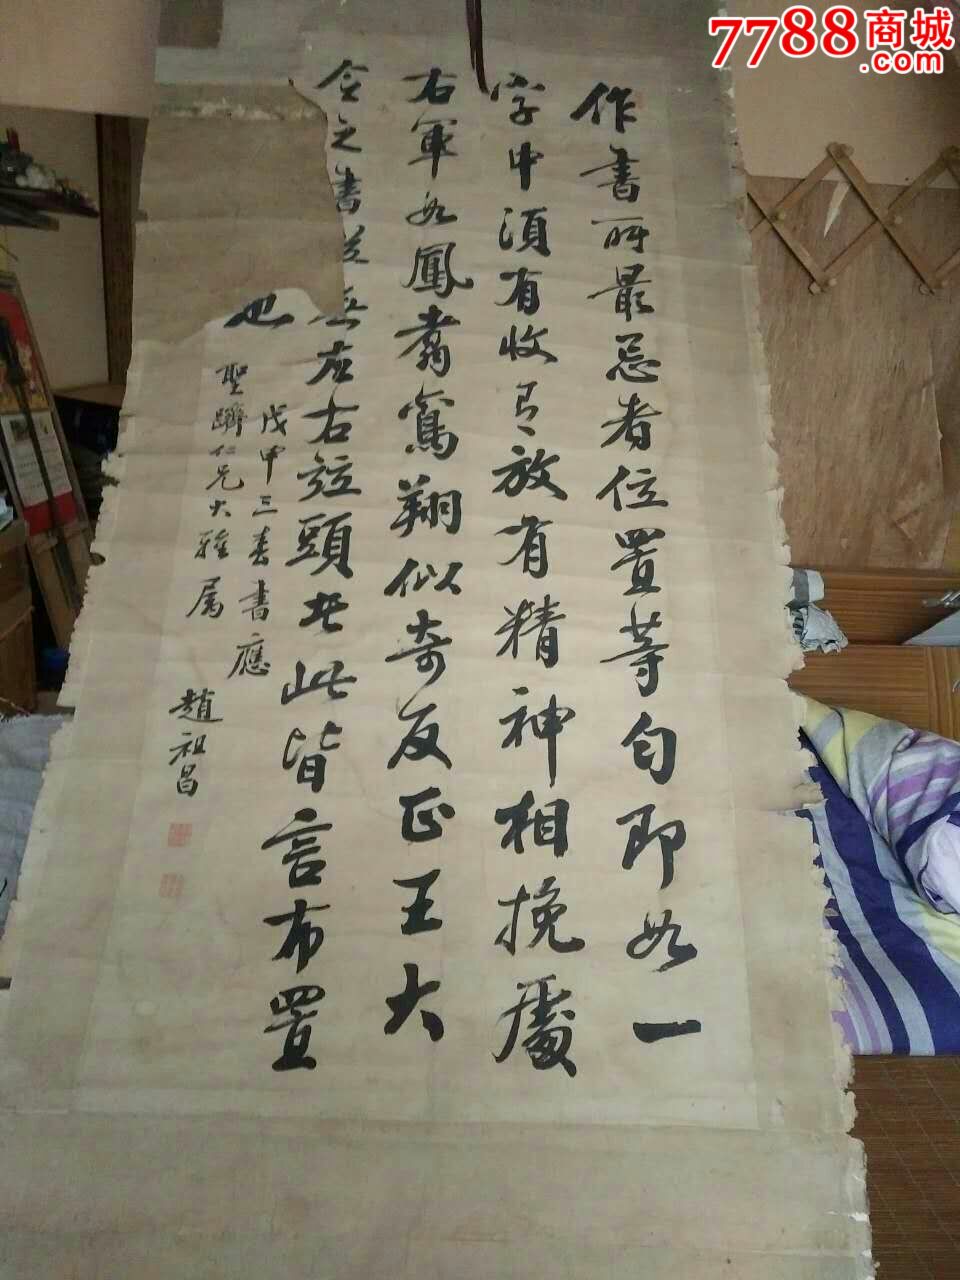 7788商城
.com
作書所最忌者位置等勻即如一
字中須有收有放有精神相挽處
右軍如鳳翥鸞翔似奇反正王大
令之書從無左右竝頭者此皆言布置
也
戊申三春書應
聖躋仁兄大雅属
趙祖昌